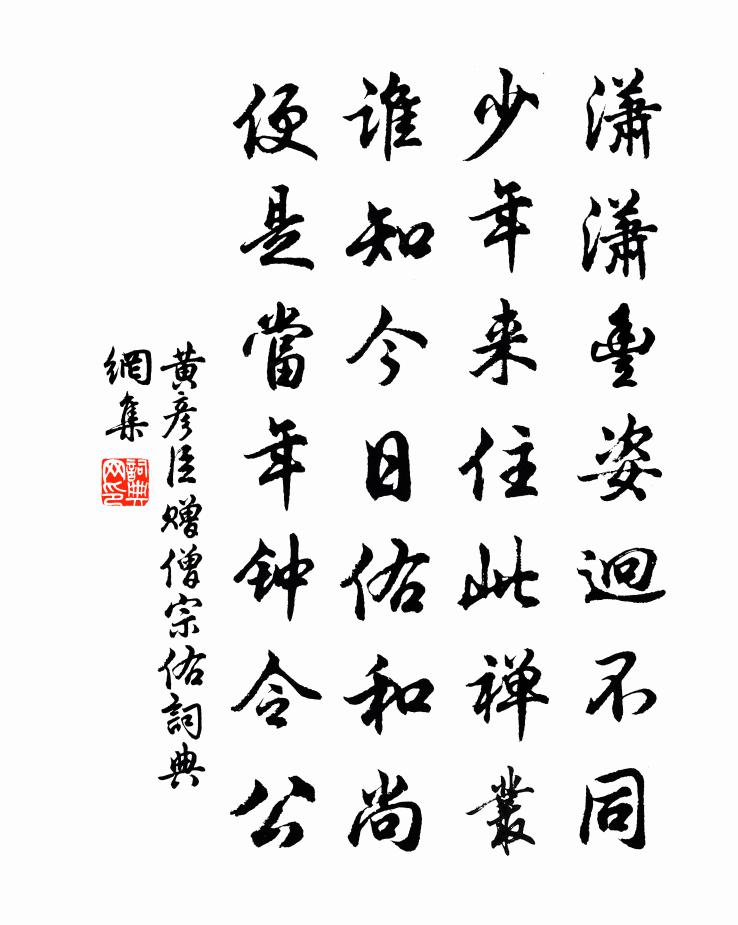 瀟瀟豐姿迥不同
少年来住此禅叢
誰知今日佑和尚
便是當年钟令公
黄彦臣赠僧宗佑詞典
網集
詞典网印